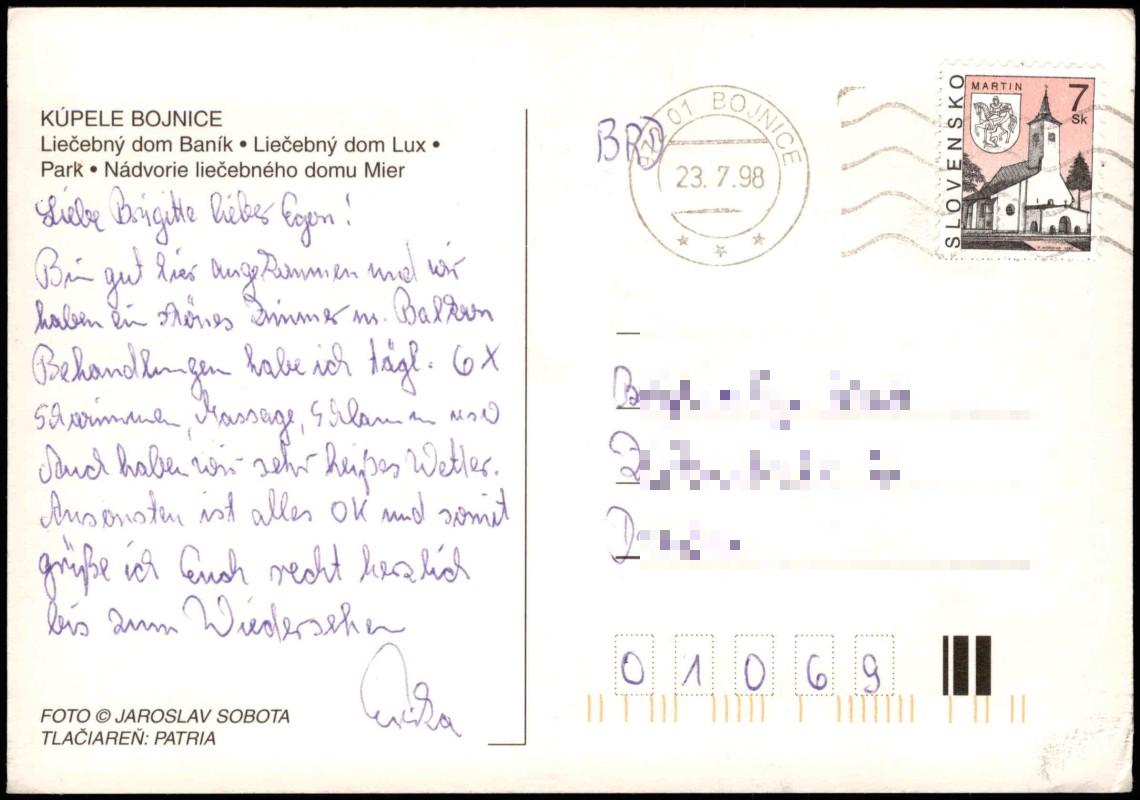 KÚPELE BOJNICE
Liečebný dom Baník • Liečebný dom Lux •
Park • Nádvorie liečebného domu Mier
Liebe Brigitte lieber Egon!
Bin gut hier angekommen und wir
haben ein schönes Zimmer m. Balkon
Behandlungen habe ich tägl. 6 X
Schwimmen, Massage, Schlamm usw
Auch haben wir sehr heißes Wetter.
Ansonsten ist alles OK und somit
grüße ich Euch recht herzlich
bis zum Wiedersehen
Erika
FOTO © JAROSLAV SOBOTA
TLAČIAREŇ: PATRIA
BRD
01 BOJNICE
23. 7. 98
SLOVENSKO
MARTIN
7
Sk
01069